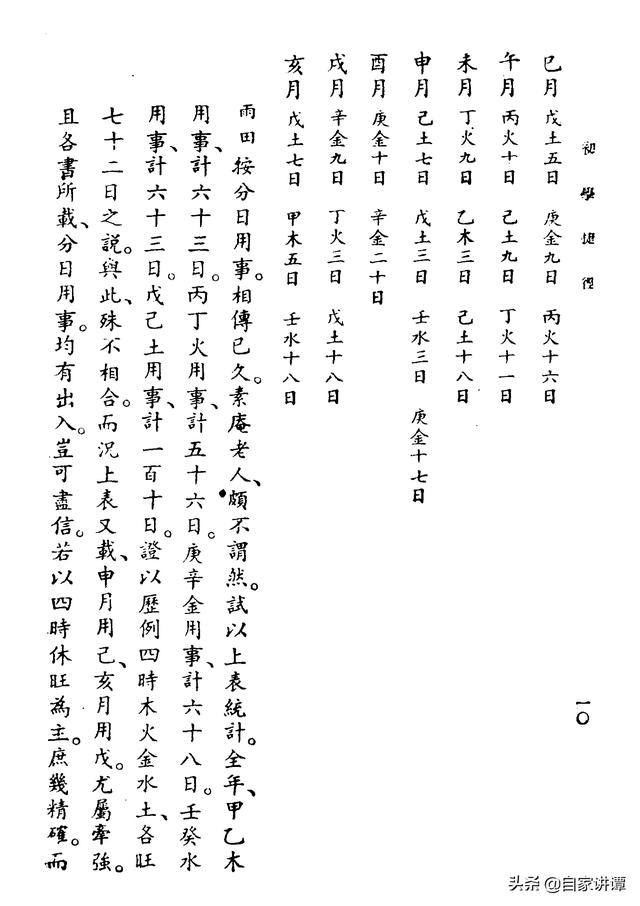 初學捷徑
巳月 戊土五日 庚金九日 丙火十六日
午月 丙火十日 己土九日 丁火十一日
未月 丁火九日 乙木三日 己土十八日
申月 己土七日 戊土三日 壬水三日 庚金十七日
酉月 庚金十日 辛金二十日
戌月 辛金九日 丁火三日 戊土十八日
亥月 戊土七日 甲木五日 壬水十八日
雨田按分日用事。相傳已久。素庵老人、頗不謂然。試以上表統計。全年、甲乙木
用事、計六十三日。丙丁火用事、計五十六日。庚辛金用事、計六十八日。壬癸水
用事、計六十三日。戊己土用事、計一百十日。證以歷例四時木火金水土、各旺
七十二日之說。與此、殊不相合。而況上表又載、申月用己、亥月用戊。尤屬牽強。
且各書所載、分日用事。均有出入。豈可盡信。若以四時休旺為主。庶幾精確。而
一〇
头条 @自家讲谭